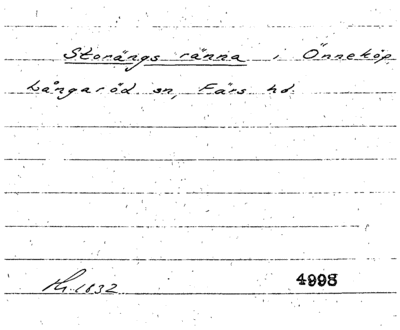 Storängs ränna i Önneköp
Långaröd sn, Färs hd.
1832 4998